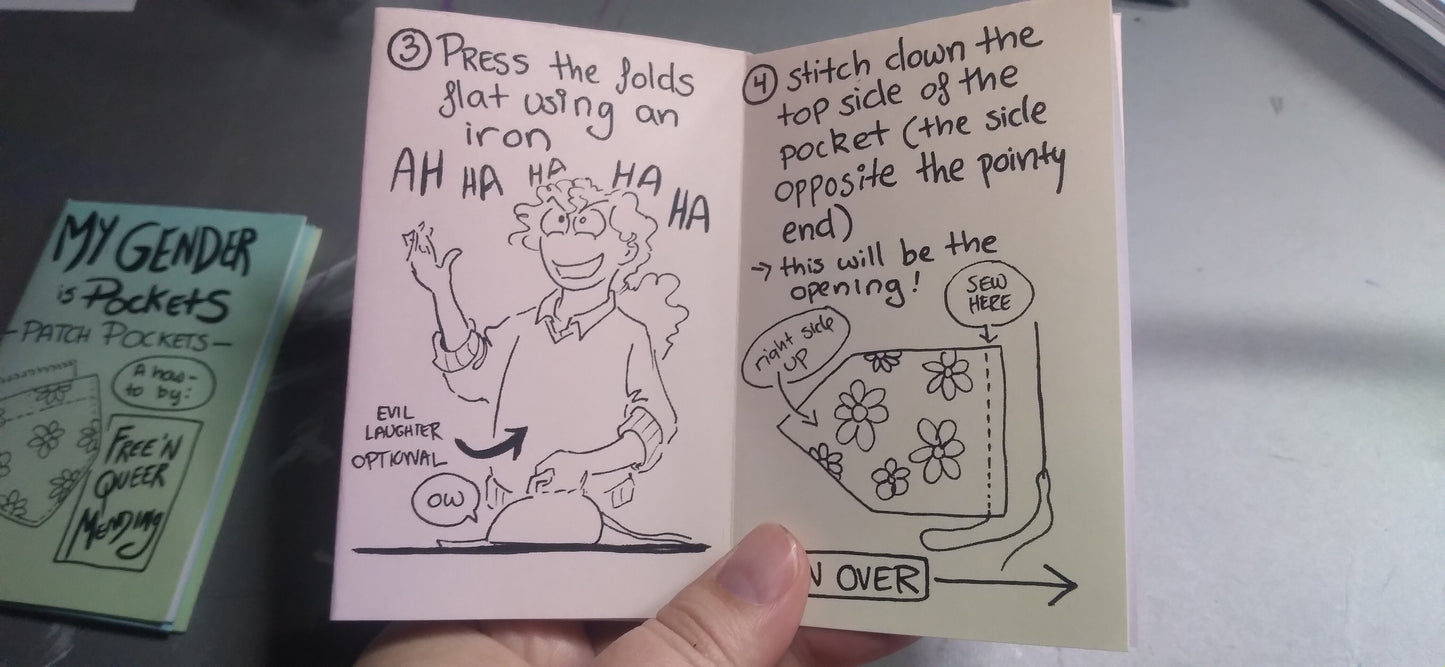 MY GENDER
is POCKETS
- PATCH POCKETS -
A how-
to by:
FREE 'N
QUEER
MENDING
③ PRESS the folds
flat using an
iron
AH HA HA HA HA
EVIL
LAUGHTER
OPTIONAL
OW
④ stitch down the
top side of the
pocket (the side
opposite the pointy
end)
→ this will be the
opening!
SEW
HERE
right side
UP
OVER